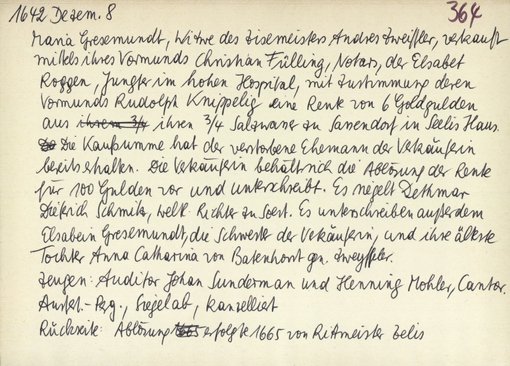 1642 Dezem. 8 364
Maria Gresemundt, Witwe des Zisemeisters Andres Zweyffler, verkauft
mittels ihres Vormunds Christian Fülling, Notars, der Elsabet
Roggen, Jungfer im hohen Hospital, mit Zustimmung deren
Vormunds Rudolph Knippelig eine Rente von 6 Goldgulden
aus ihrem 3/4 ihren 3/4 Salzwasser zu Sassendorf in Seelis Haus.
Die Kaufsumme hat der verstorbene Ehemann der Verkäuferin
bereits erhalten. Die Verkäuferin behält sich die Ablösung der Rente
für 100 Gulden vor und unterschreibt. Es siegelt Dethmar
Dietrich Schmitz, weltl. Richter zu Soest. Es unterschreiben außerdem
Elsabein Gresemundt, die Schwester der Verkäuferin, und ihre älteste
Tochter Anna Catharina von Batenhorst gn. Zweyffler.
Zeugen: Auditor Johan Sunderman und Henning Mohler, Cantor.
Ausf.-Perg., Siegel ab, kanzelliert
Rückseite: Ablösung erfolgte 1665 von Ritmeister Zelis